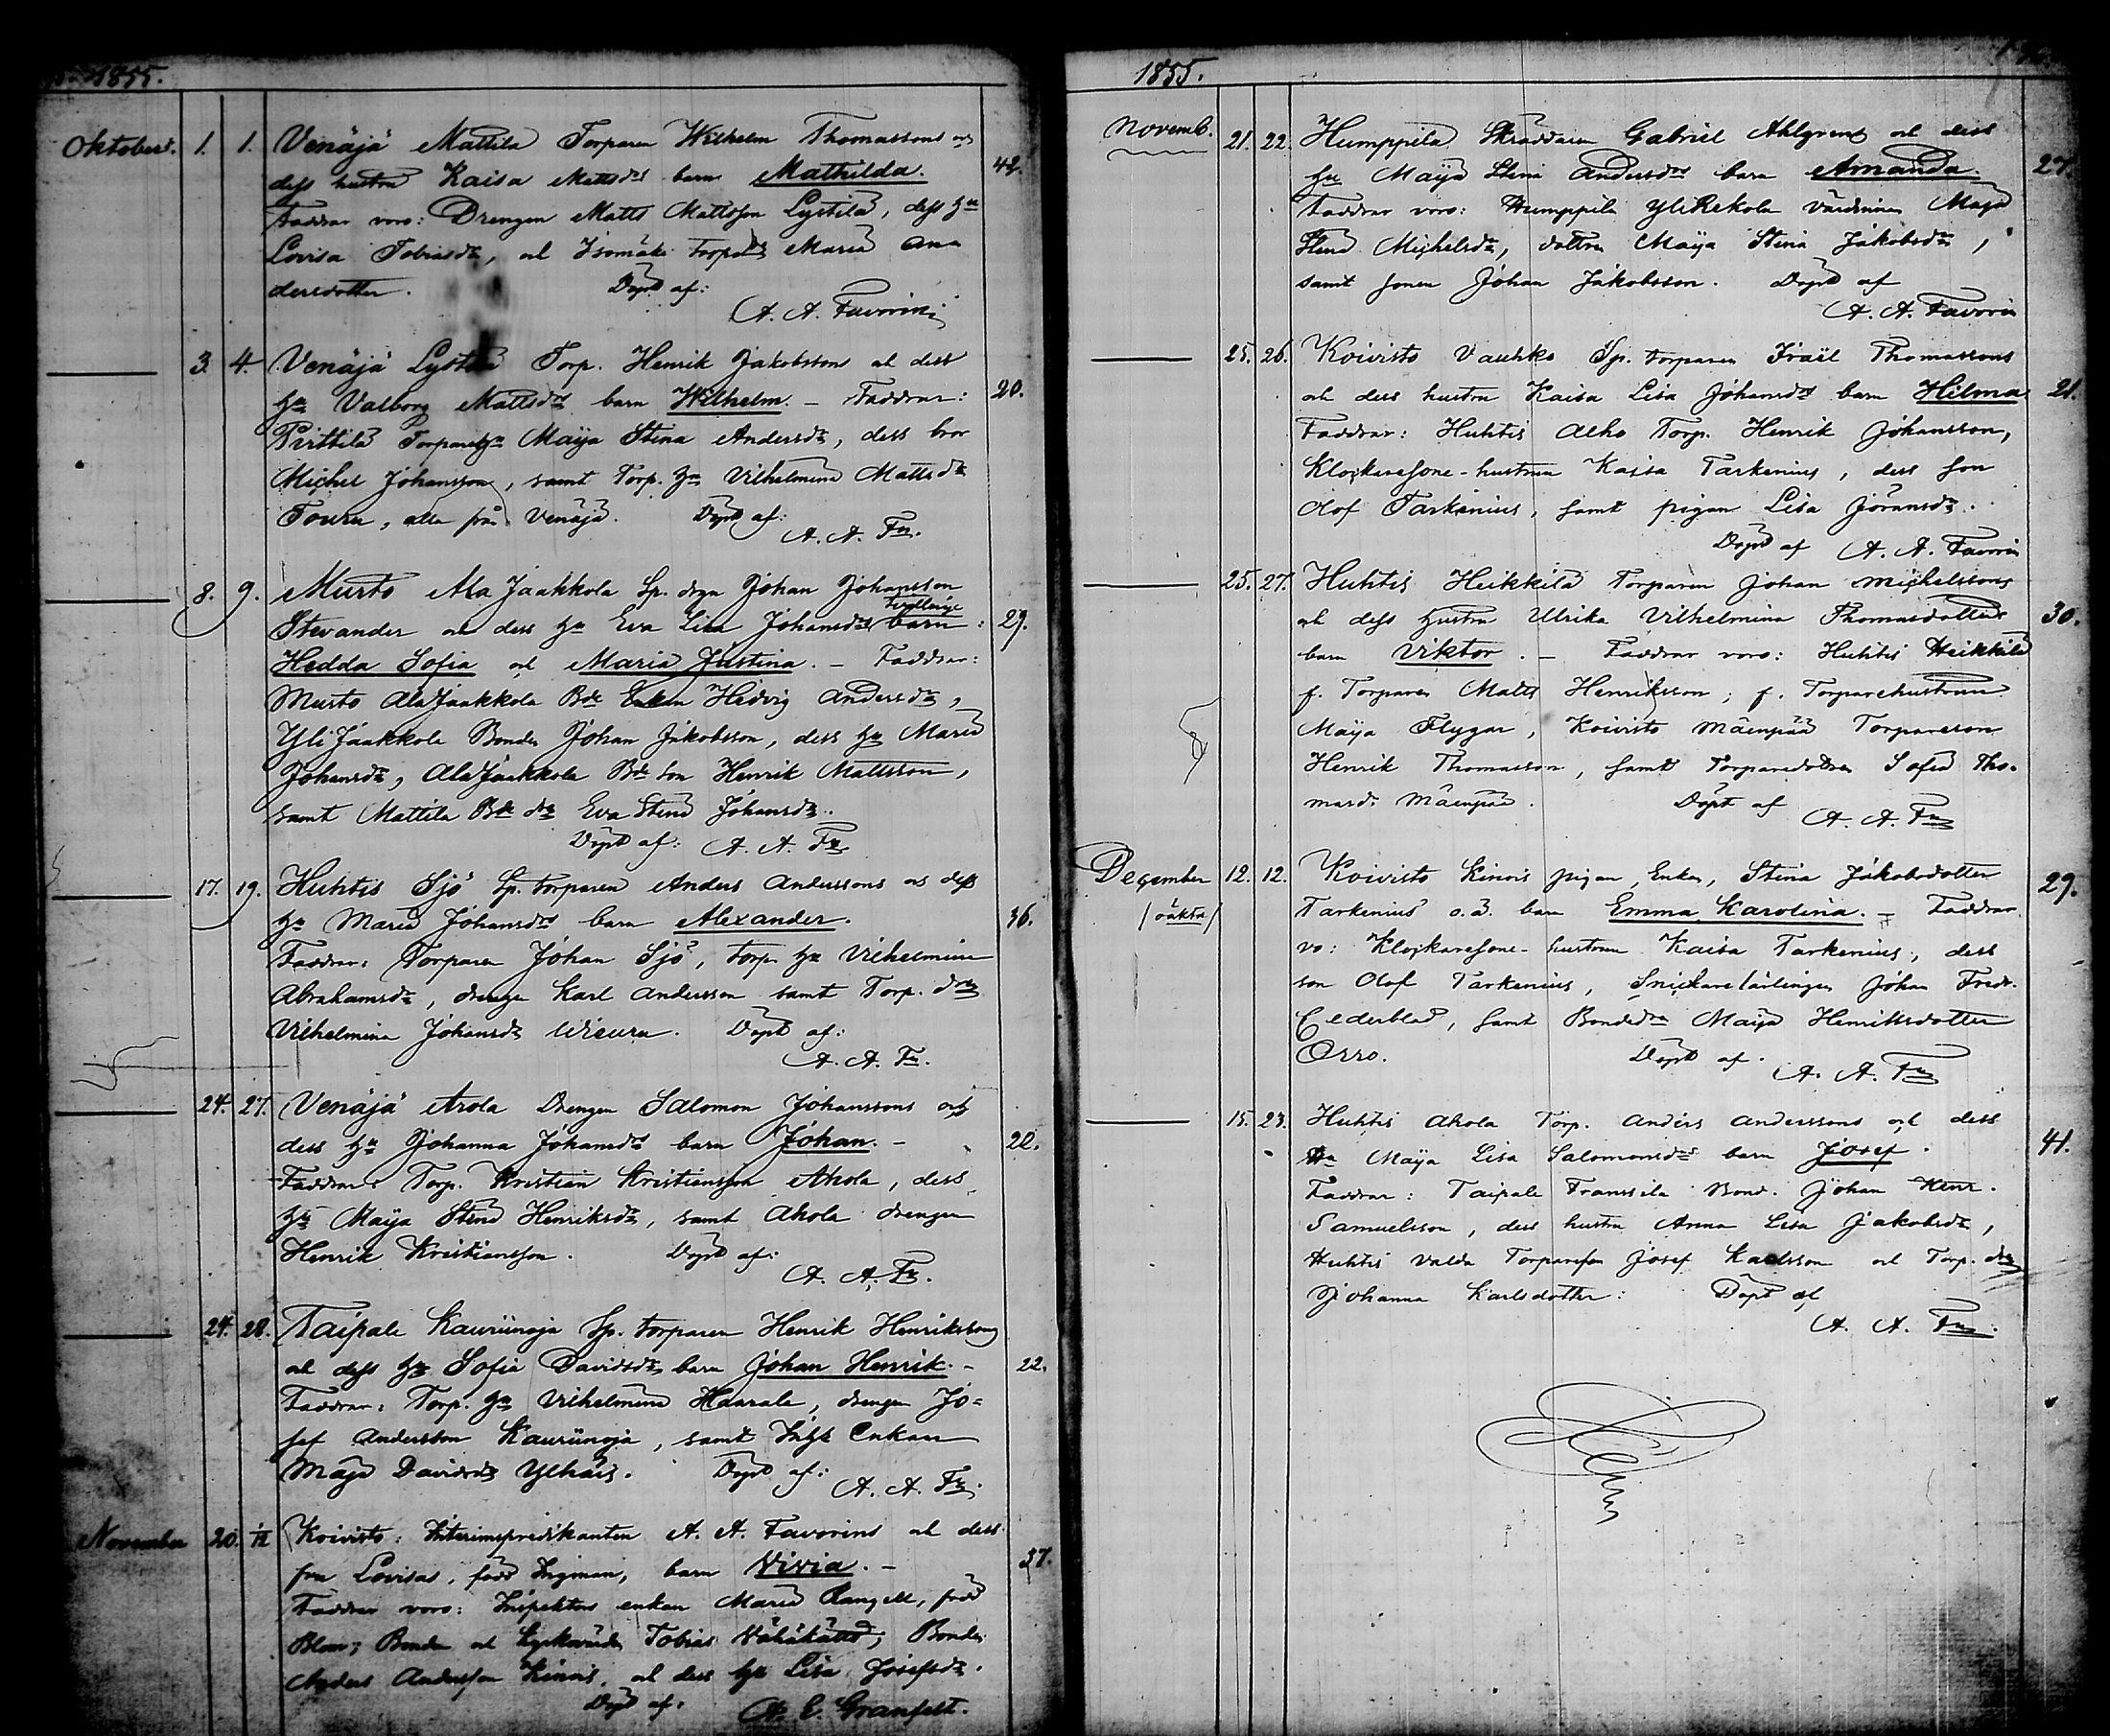 1855.
Oktober. 1. 1. Venäjä Mattila Torparen Wilhelm Thomassons och
dess hustru Kaisa Mattsdrs barn Mathilda. 42.
Faddrar voro: Drengen Matts Mattsson Lystilä, dess hu
Lovisa Tobiasdr, och Isomäki Torpdr Maria An-
dersdotter. Döpt af:
A. A. Favorin.
3. 4. Venäjä Torp. Henrik Jakobssons och dess
hu Valborg Mattsdrs barn Wilhelm. – Faddrar: 20.
Pirttilä Torparehu Maija Stina Andersdr, dess bror
Michel Johansson, samt Torp. hu Vilhelmina Mattsdr
Touru, alla från Venäjä. Döpt af:
A. A. Fn.
8. 9. Murto Ala Jaakkola Sp. drgn Johan Johansson
tvillinge
Stevander och dess hu Eva Lisa Johansdrs barn: 29.
Hedda Sofia och Maria Justina. – Faddrar:
Murto AlaJaakkola Bde Enkan Hedvig Andersdr,
YliJaakkola Bonden Johan Jakobsson, dess hu Maria
Johansdr, AlaJaakkola Bde son Henrik Mattsson,
samt Mattila Bde dr Eva Stina Johansdr.
Döpt af: A. A. Fn.
17. 19. Huhtis Sjö Sp. torparen Anders Anderssons och dess
hu Maria Johansdrs barn Alexander. 36.
Faddrar: Torparen Johan Sjö, Torp. hu Vilhelmina
Abrahamsdr, drengen Karl Andersson samt Torp. dr
Vilhelmina Johansdr. Döpt af:
A. A. Fn.
24. 27. Venäjä Drengen Salomon Johanssons och
dess hu Johanna Johansdrs barn Johan. – 22.
Faddrar: Torp. Kristian Kristiansson Ahola, dess
hu Maija Stina Henriksdr, samt Ahola drengen
Henrik Kristiansson. Döpt af:
A. A. Fn.
24. 28. Taipale Kauriinoja Sp. torparen Henrik Henrikssons
och dess hu Sofia Davidsdrs barn Johan Henrik. – 22.
Faddrar: Torp. hu Vilhelmina Haarala, drengen Jo-
sef Andersson Kauriinoja, samt Enkan
Maja Davidsdr Ylhäis. Döpt af:
A. A. Fn.
November 20. Koivisto: Interimspredikanten A. A. Favorins och dess
fru Lovisas, född Ingman, barn Vivia. – 37.
Faddrar voro: Inspektors enkan Maria Rangell, född
Blom; Bonden och Kyrkovärden Tobias Vähäkättö; Bonden
Anders Andersson Kinois, och dess hu Lisa Josefsdr.
Döpt af: A. E. Granfelt.
1855.
Novemb. 21. 22. Humppila Skräddaren Gabriel Ahlgrens och dess
hu Maija Stina Andersdrs barn Amanda. 27.
Faddrar voro: Humppila YliRekola värdinnan Maja
Stina Michelsdr, dottren Maija Stina Jakobsdr,
samt sonen Johan Jakobsson. Döpt af
A. A. Favorin
25. 26. Koivisto Vauhko Sp. torparen Israel Thomassons
och dess hustru Kaisa Lisa Johansdrs barn Hilma 21.
Faddrar: Huhtis Alho Torp. Henrik Johansson,
Klockaresone-hustrun Kaisa Tarkenius, dess son
Olof Tarkenius, samt pigan Lisa Göransdr.
Döpt af A. A. Favorin
25. 27. Huhtis Heikkilä Torparen Johan Michelssons
och dess hustru Ulrika Vilhelmina Thomasdotters 30.
barn Viktor. – Faddrar voro: Huhtis Heikkilä
f. Torparen Matts Henriksson; f. Torparehustrun
Maija Flygar, Koivisto Mäenpää Torpareson
Henrik Thomasson, samt Torparedottren Sofia Tho-
masdr Mäenpää. Döpt af
A. A. Fn
December 12. 12. Koivisto Kinois pigan, Enkan, Stina Jakobsdotter 29.
/oäkta/ Tarkenius o.ä. barn Emma Karolina. – Faddrar
vo: Klockaresone-hustrun Kaisa Tarkenius, dess
son Olof Tarkenius, Snickarelärlingen Johan Fredr.
Cederblad, samt Bondedr Maija Henriksdotter
Orro. Döpt af.
A. A. Fn
15. 23. Huhtis Ahola Torp. Anders Anderssons och dess
Hu Maija Lisa Salomonsdrs barn Josef. 41.
Faddrar: Taipale Franssila Bond. Johan Henr.
Samuelsson, dess hustru Anna Lisa Jakobsdr,
Huhtis Torpareson Josef Karlsson och Torp. dr
Johanna Karlsdotter: Döpt af
A. A. Fn.